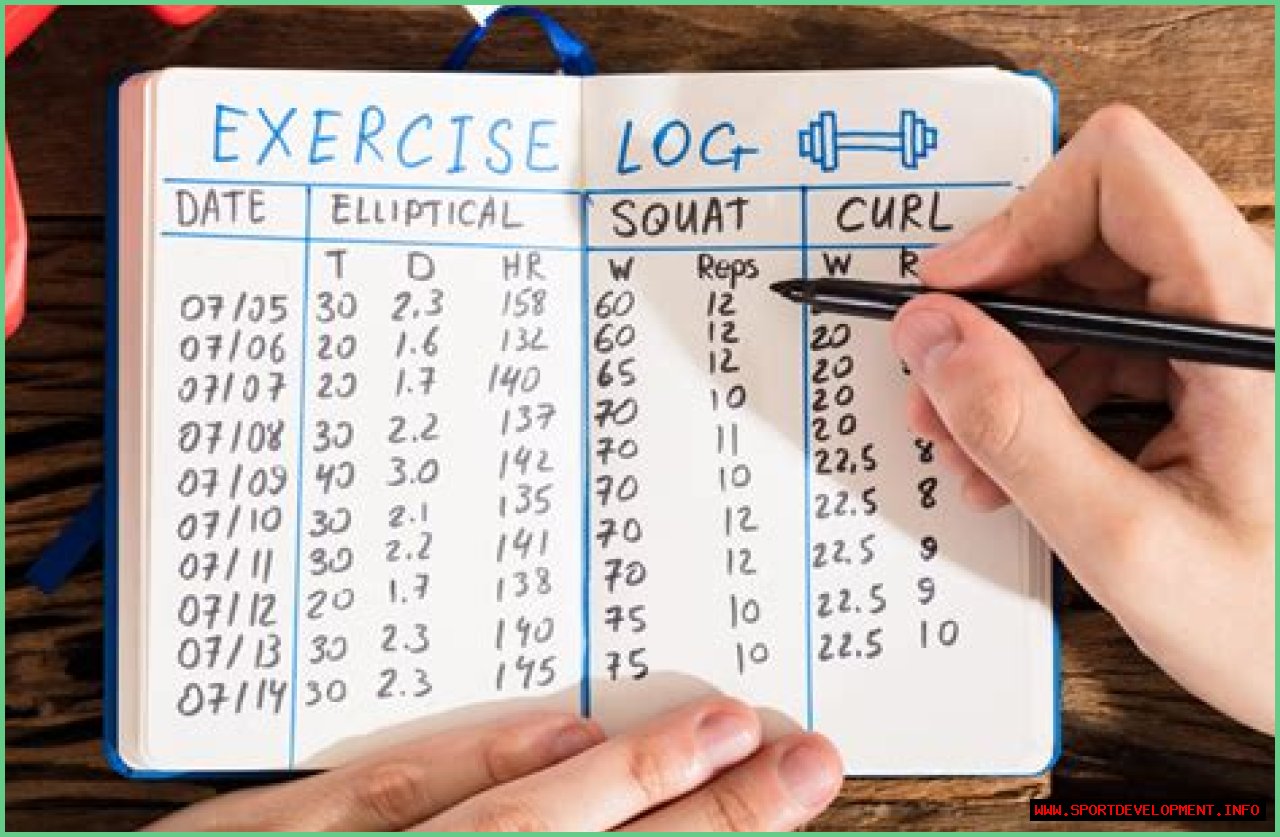 EXERCISE LOG
DATE ELLIPTICAL SQUAT CURL
T D HR W Reps W R
07/05 30 2.3 158 60 12
07/06 20 1.6 132 60 12 20
07/07 20 1.7 140 65 12 20
07/08 30 2.2 137 70 10 20
07/09 40 3.0 142 70 11 20
07/10 30 2.1 135 70 10 22,5 8
07/11 30 2.2 141 70 12 22.5 8
07/12 20 1.7 138 70 12 22.5 9
07/13 30 2.3 140 75 10 22.5 9
07/14 30 2.3 145 75 10 22.5 10
WWW.SPORTDEVELOPMENT.INFO